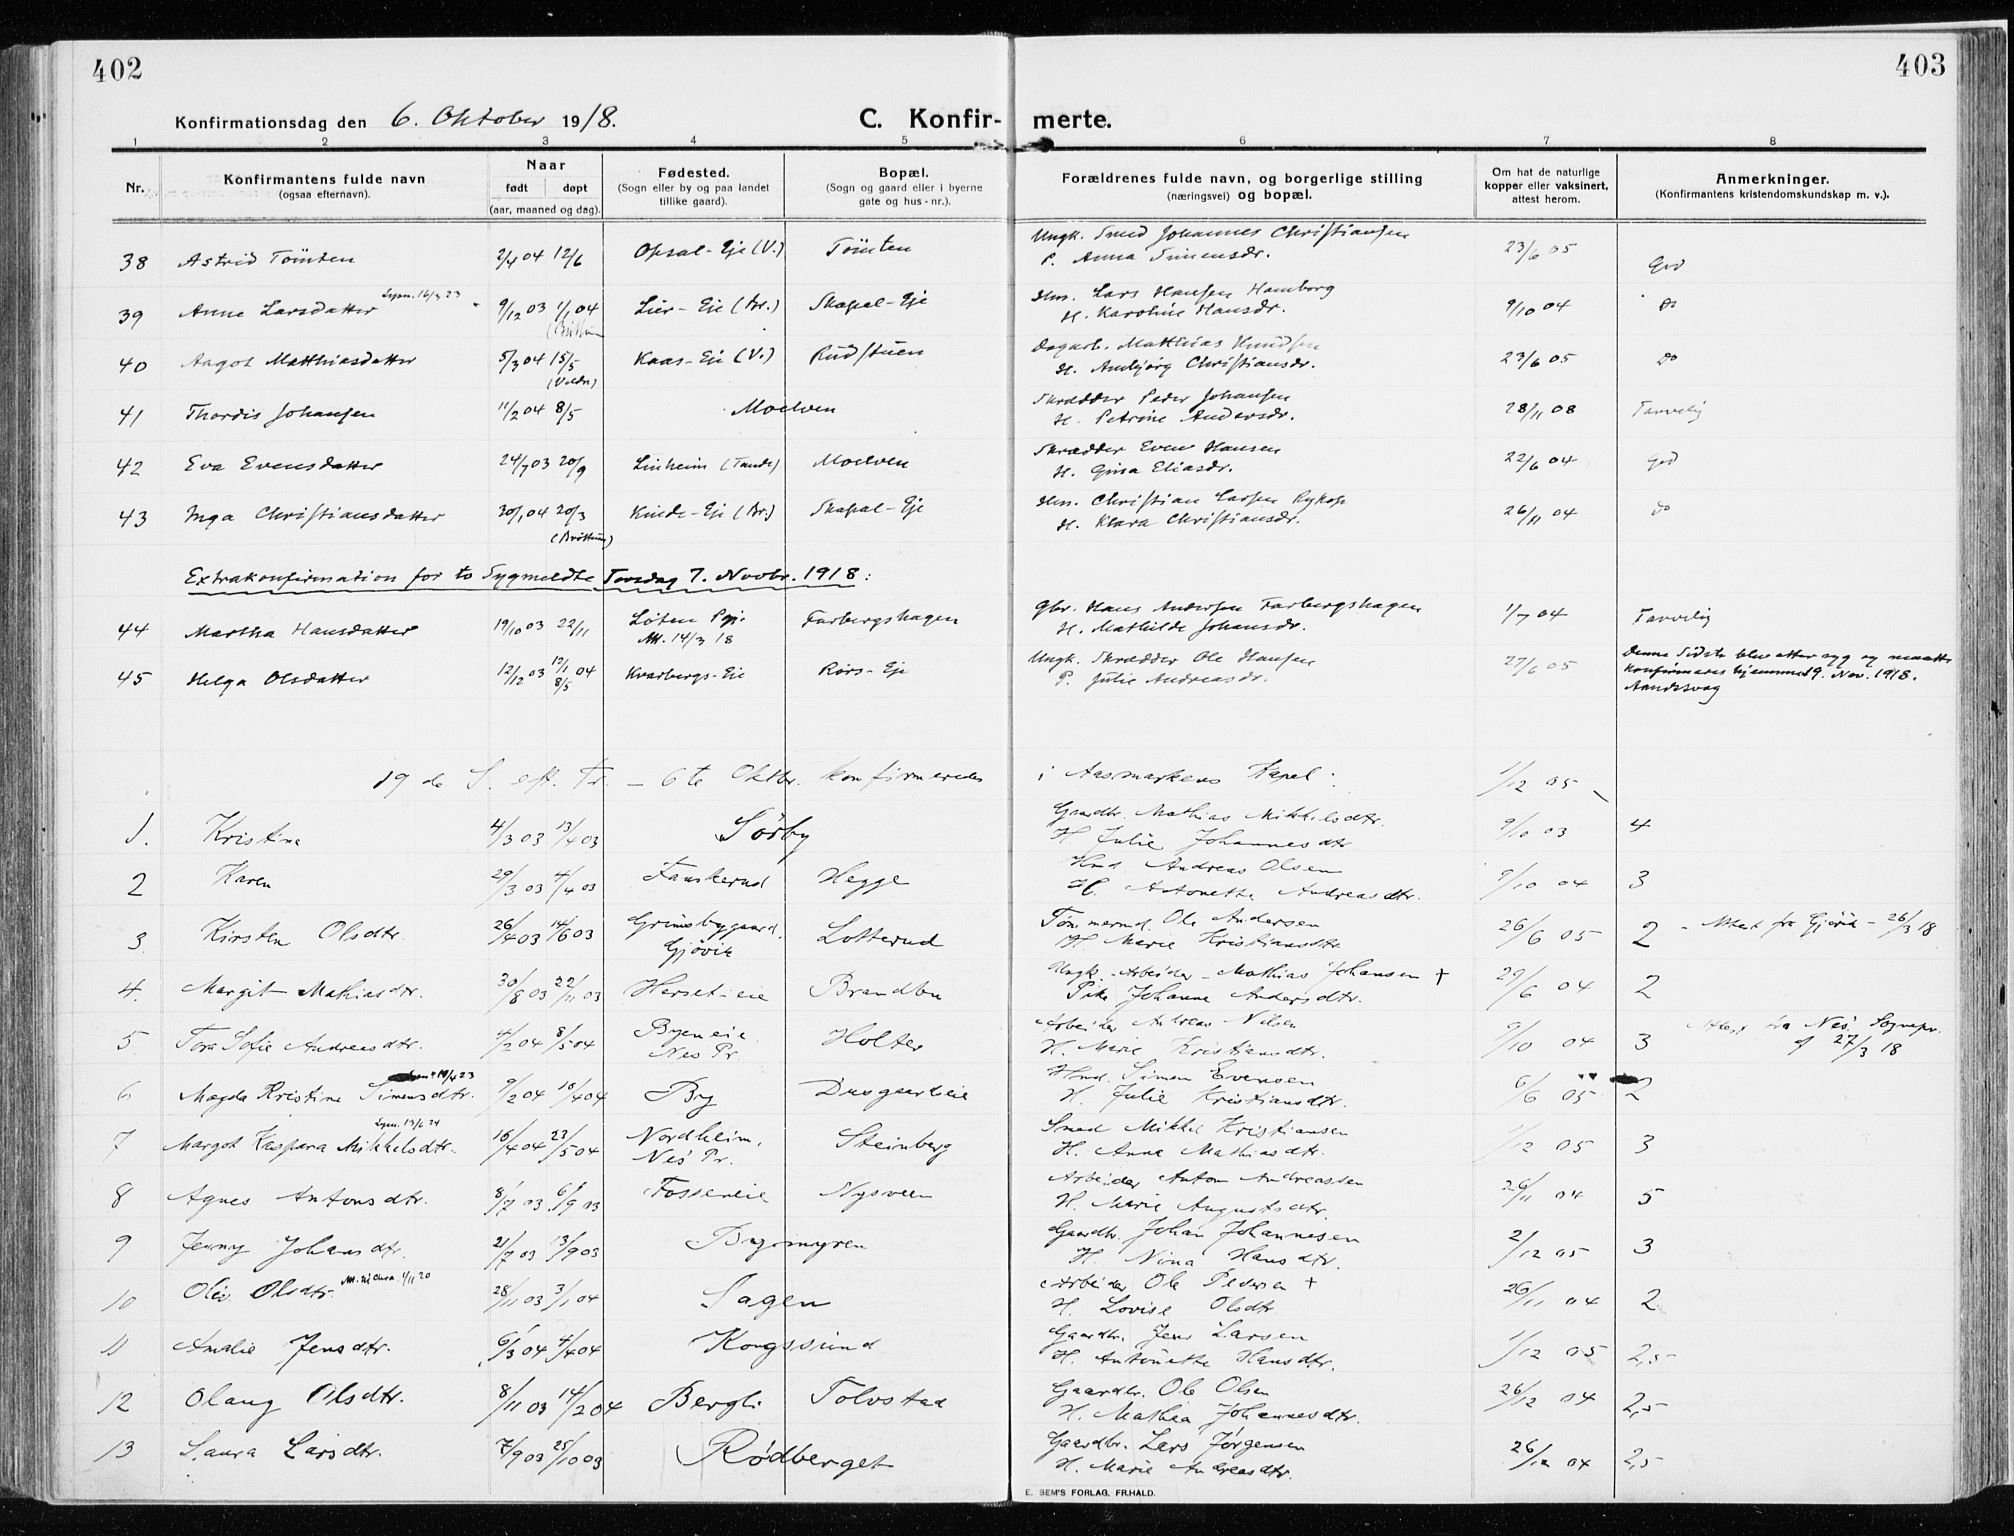 402
403
Konfirmationsdag den 6. Oktober 1918.
C. Konfir- merte.
1 2 3 4 5 6 7 8
Nr.
Konfirmantens fulde navn
(ogsaa efternavn).
Naar
født døpt
(aar, maaned og dag).
Fødested.
(Sogn eller by og paa landet
tillike gaard).
Bopæl.
(Sogn og gaard eller i byerne
gate og hus-nr.).
Forældrenes fulde navn, og borgerlige stilling
(næringsvei) og bopæl.
Om hat de naturlige
kopper eller vaksinert,
attest herom.
Anmerkninger.
(Konfirmantens kristendomskundskap m. v.).
Ungk. Smed Johannes Christiansen
38 Astrid Tömten 2/4 04 12/6 Opsal-Eje (V.) Tömten P. Anna Simensdr. 23/6 05 God
Hm. Lars Hansen Hamborg
39 Anne Larsdatter 9/12 03 1/1 04 Lier-Eje (Br.) Skapal-Eje H. Karoline Hansdr. 9/10 04 Do
Dagarb. Matthias Knudsen
40 Aagot Matthiasdatter 5/3 04 15/5 Kaas-Eje (V.) Rudstuen H. Anbjørg Christiansdr. 23/6 05 Do
(Veldr)
Skrædder Peder Johansen
41 Thordis Johansen 11/2 04 8/5 Moelven H. Petrine Andersdr. 28/11 08 Tarvelig
Skrædder Even Hansen
42 Eva Evensdatter 24/7 03 20/9 Linheim (Tande) Moelven H. Gina Eliasdr. 22/6 04 God
Hm. Christian Larsen
43 Inga Christiansdatter 30/1 04 20/3 Kinde-Eje (Br.) Skapal-Eje H. Klara Christiansdr. 26/11 04 Do
(Brøttum)
Extrakonfirmation for to Sygmeldte Torsdag 7. Novbr. 1918:
Gbr. Hans Andersen Farbergshagen
44 Martha Hansdatter 19/10 03 22/11 Løten Pgj. Farbergshagen H. Mathilde Johansdr. 1/7 04 Tarvelig
Att. 14/3 18
Ungk. Skrædder Ole Hansen
45 Helga Olsdatter 12/12 03 12/1 04 8/5 Kvarbergs-Eje Rørs-Eje P. Julie Andreasdr. 27/6 05 Denne Sidste blev atter syg og maatte
konfirmeres hjemme 9. Nov. 1918.
Aandssvag
19de S. eft. Tr. - 6te Oktbr. konfirmeredes i Aasmarkens Kapel: 1/12 05
Gaardbr. Mathias Mikkelsdtr.
1. Kristina 4/3 03 13/4 03 Sörby H Julie Johannesdtr 9/10 03 4
Hmd. Andreas Olsen
2 Karen 29/3 03 4/4 03 Fauskerud Hegge H. Antonette Andreasdtr. 9/10 04 3
Tømmermd. Ole Andersen
3 Kirsten Olsdtr. 26/4 03 14/6 03 Grimsbygaard, Gjövik Lotterud H Marie Kristiansdtr. 26/6 05 2 - Attest fra Gjövik - 26/3 18
Ungk. Arbeider Mathias Johansen +
4. Margit Mathiasdtr. 30/8 03 22/11 03 Herseteie Brandbu Pike Johanne Andersdtr. 29/6 04 2
Arbeider Andreas Nilsen
5. Tora Sofie Andreasdtr. 4/2 04 8/5 04 Byeneie Nes Pr. Holter H. Marie Kristiansdtr. 9/10 04 3 Attest fra Nes Sognepr. af 27/3 18
Hmd. Simen Evensen
6 Magda Kristine Simensdtr. 9/2 04 10/4 04 By Dusgaardeie H. Julie Kristiansdtr. 6/6 05 2
Smed Mikkel Kristiansen
7 Margot Kaspara Mikkelsdtr. 16/4 04 23/5 04 Nordheim, Nes Pr. Steinberg H. Anna Mathiasdtr. 1/12 05 3
Arbeider Anton Andreassen
8 Agnes Antonsdtr. 8/7 03 6/9 03 Fosseneie Nysveen H. Marie Augustsdtr. 26/11 04 5
Gaardbr. Johan Johannesen
9 Jenny Johansdtr. 21/7 03 13/9 03 Bysmyren H. Nina Hansdtr. 2/12 05 3
Arbeider Ole Pedersen +
10 Olsdtr. 28/11 03 3/1 04 Sagen H. Lovise Olsdtr. 26/11 04 2
Gaardbr. Jens Larsen
11 Amalie Jensdtr. 6/3 04 4/4 04 Kongssund H. Antonette Hansdtr. 1/12 05 2,5
Gaardbr. Ole Olsen
12 Olaug Olsdtr. 8/11 03 14/2 04 Bergli Tolvstad H. Mathea Johannesdtr. 26/12 04 2,5
Gaardbr. Lars Jørgensen
13 Laura Larsdtr. 7/9 03 25/10 03 Rødberget H. Marie Andreasdtr. 26/12 04 2,5
E. SEM'S FORLAG, FR.HALD.